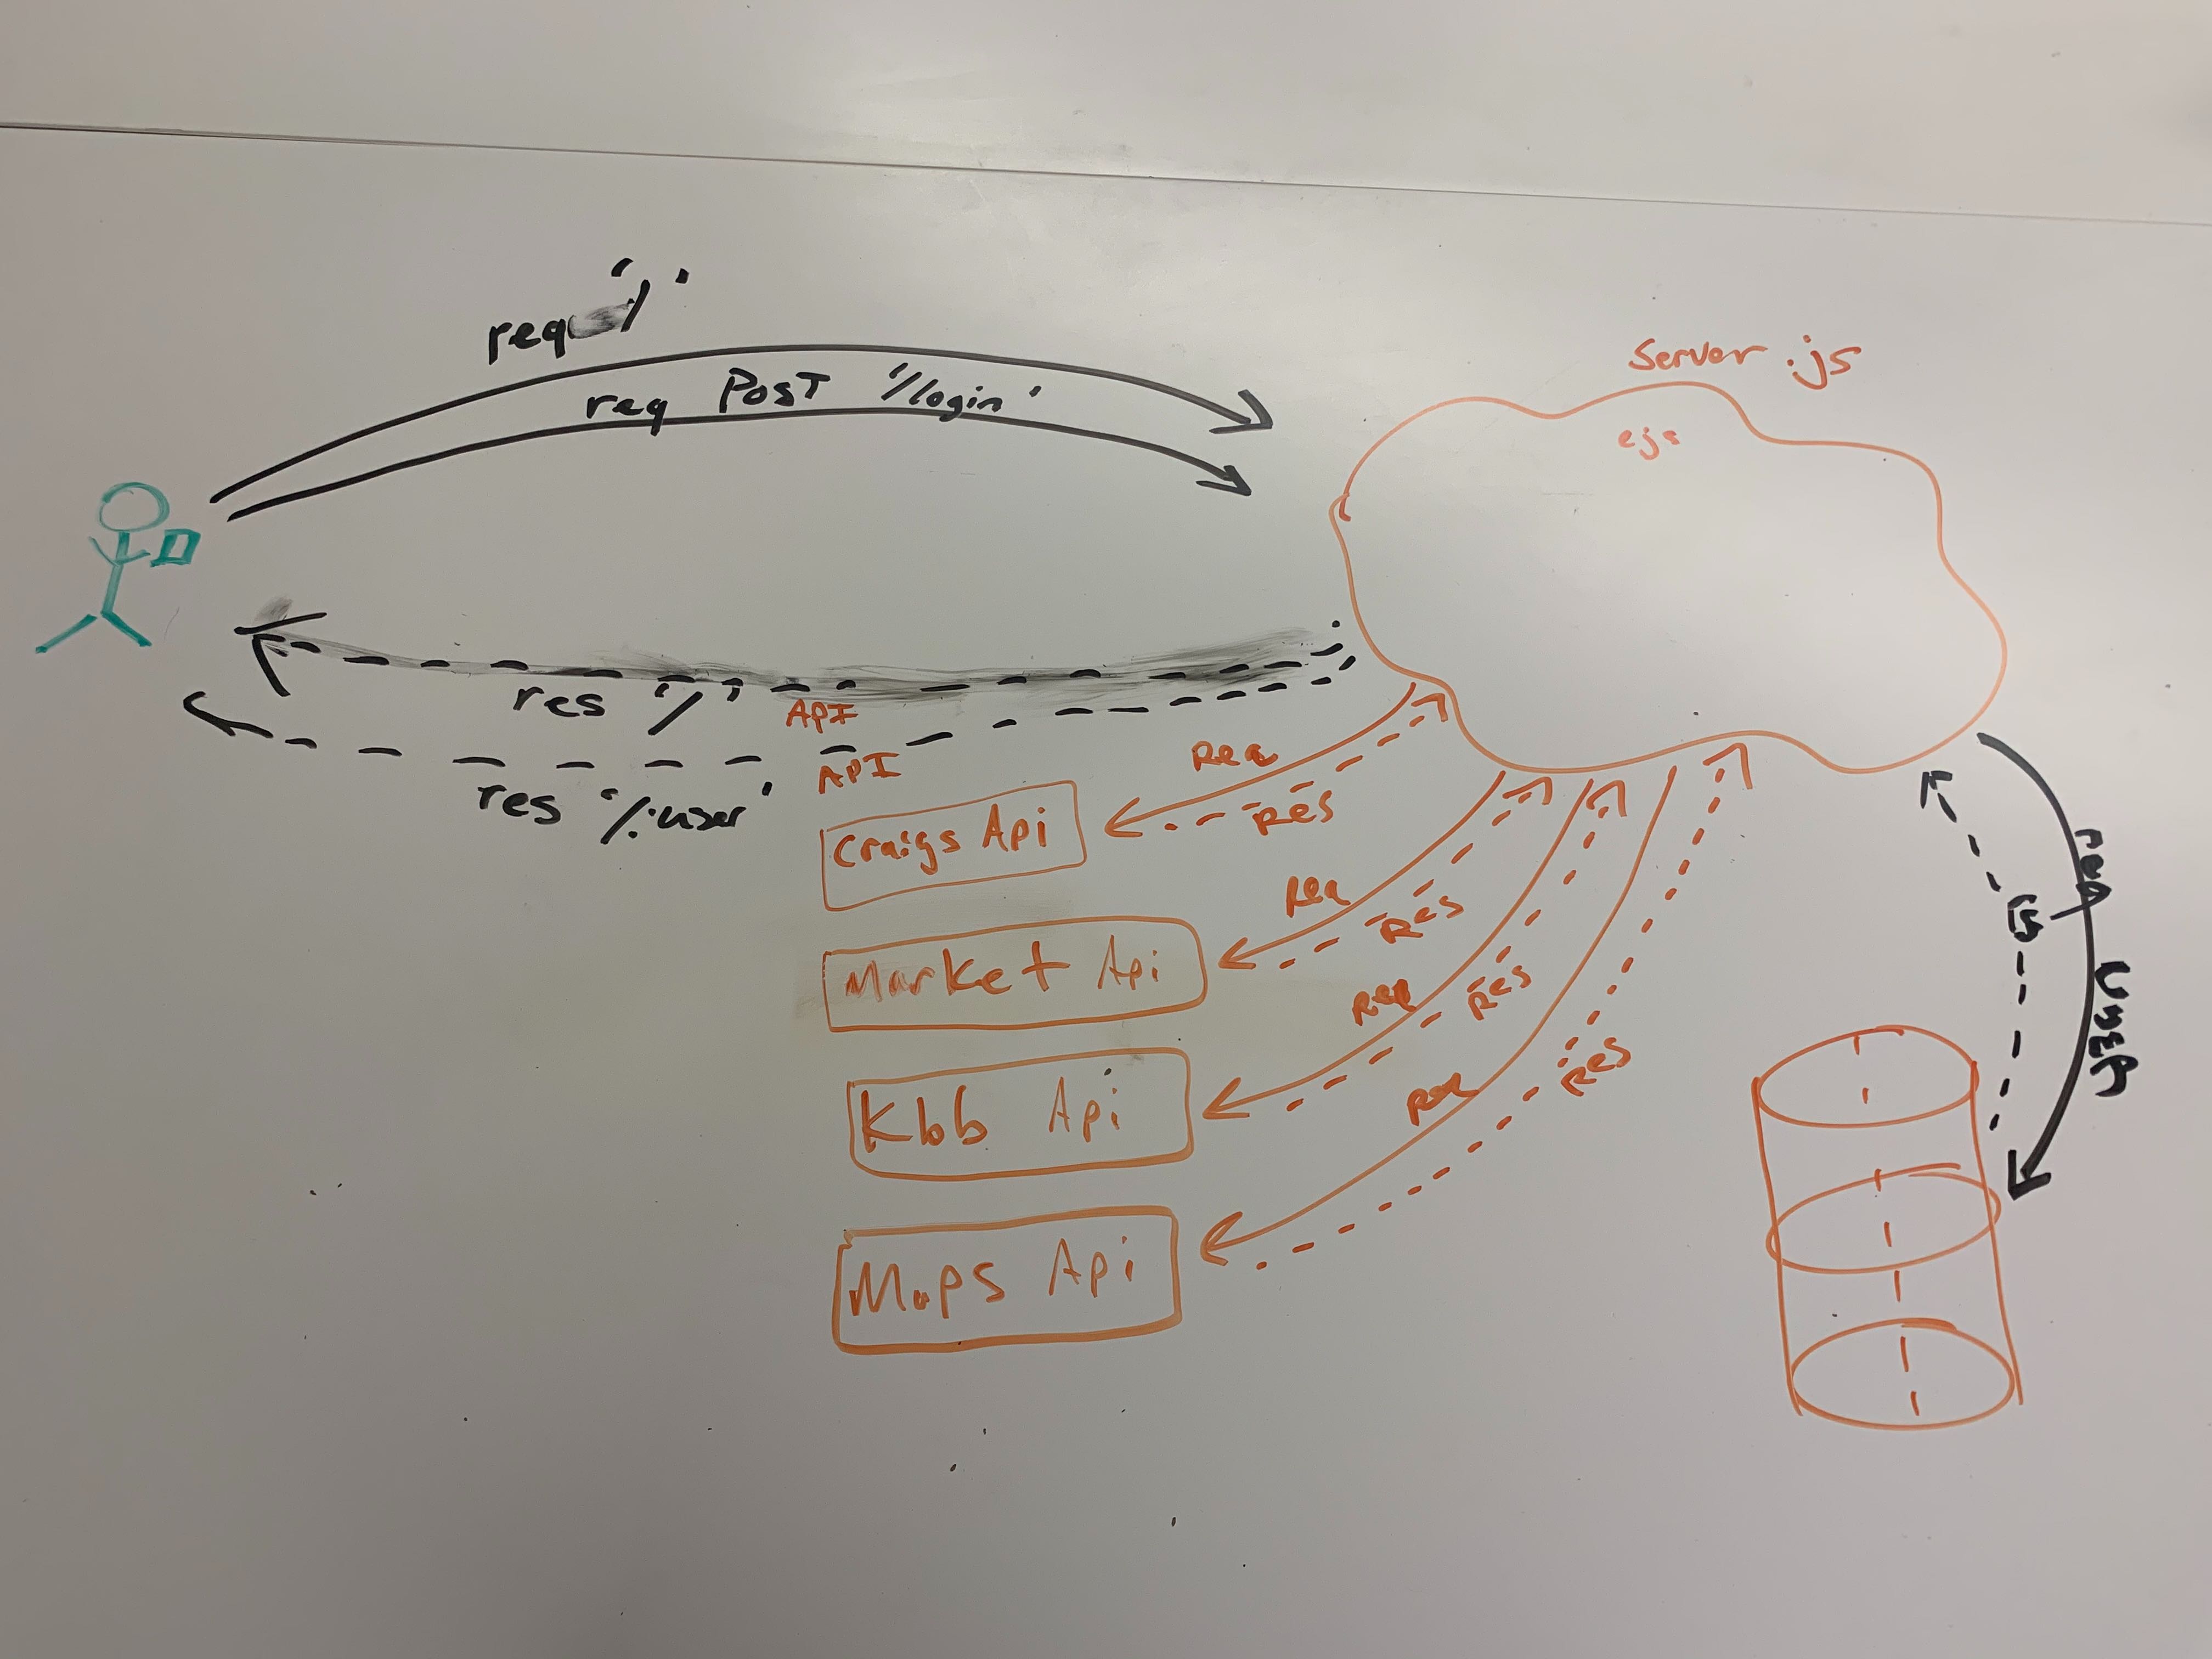 req '/'
req POST '/login'
Server.js
ejs
res '/'
API
API
res '/:user'
Req
Res
Craigs Api
Req
Res
Market Api
Req
Res
Kbb Api
Req
Res
Maps Api
req User
res